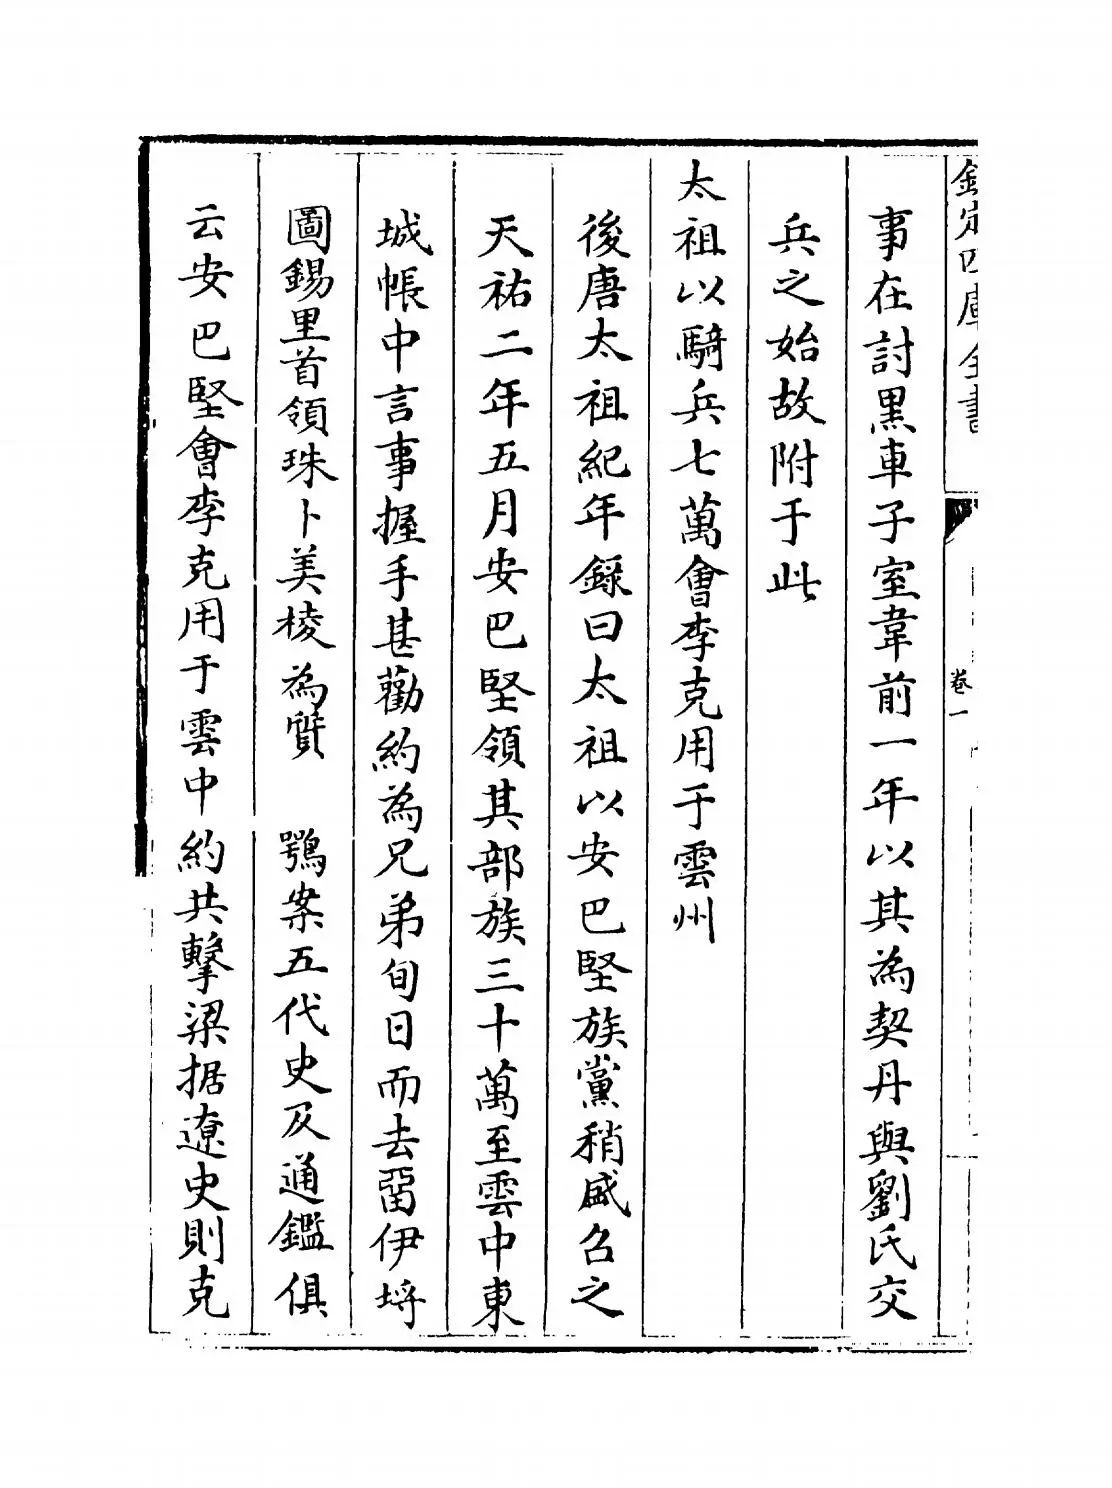 欽定四庫全書
卷一
事在討黒車子室韋前一年以其為契丹與劉氏交
兵之始故附于此
太祖以騎兵七萬會李克用于雲州
後唐太祖紀年錄曰太祖以安巴堅族黨稍盛召之
天祐二年五月安巴堅領其部族三十萬至雲中東
城帳中言事握手甚勸約為兄弟旬日而去留伊埒
圖錫里首領珠卜美棱為質　鶚案五代史及通鑑俱
云安巴堅會李克用于雲中約共擊梁据遼史則克